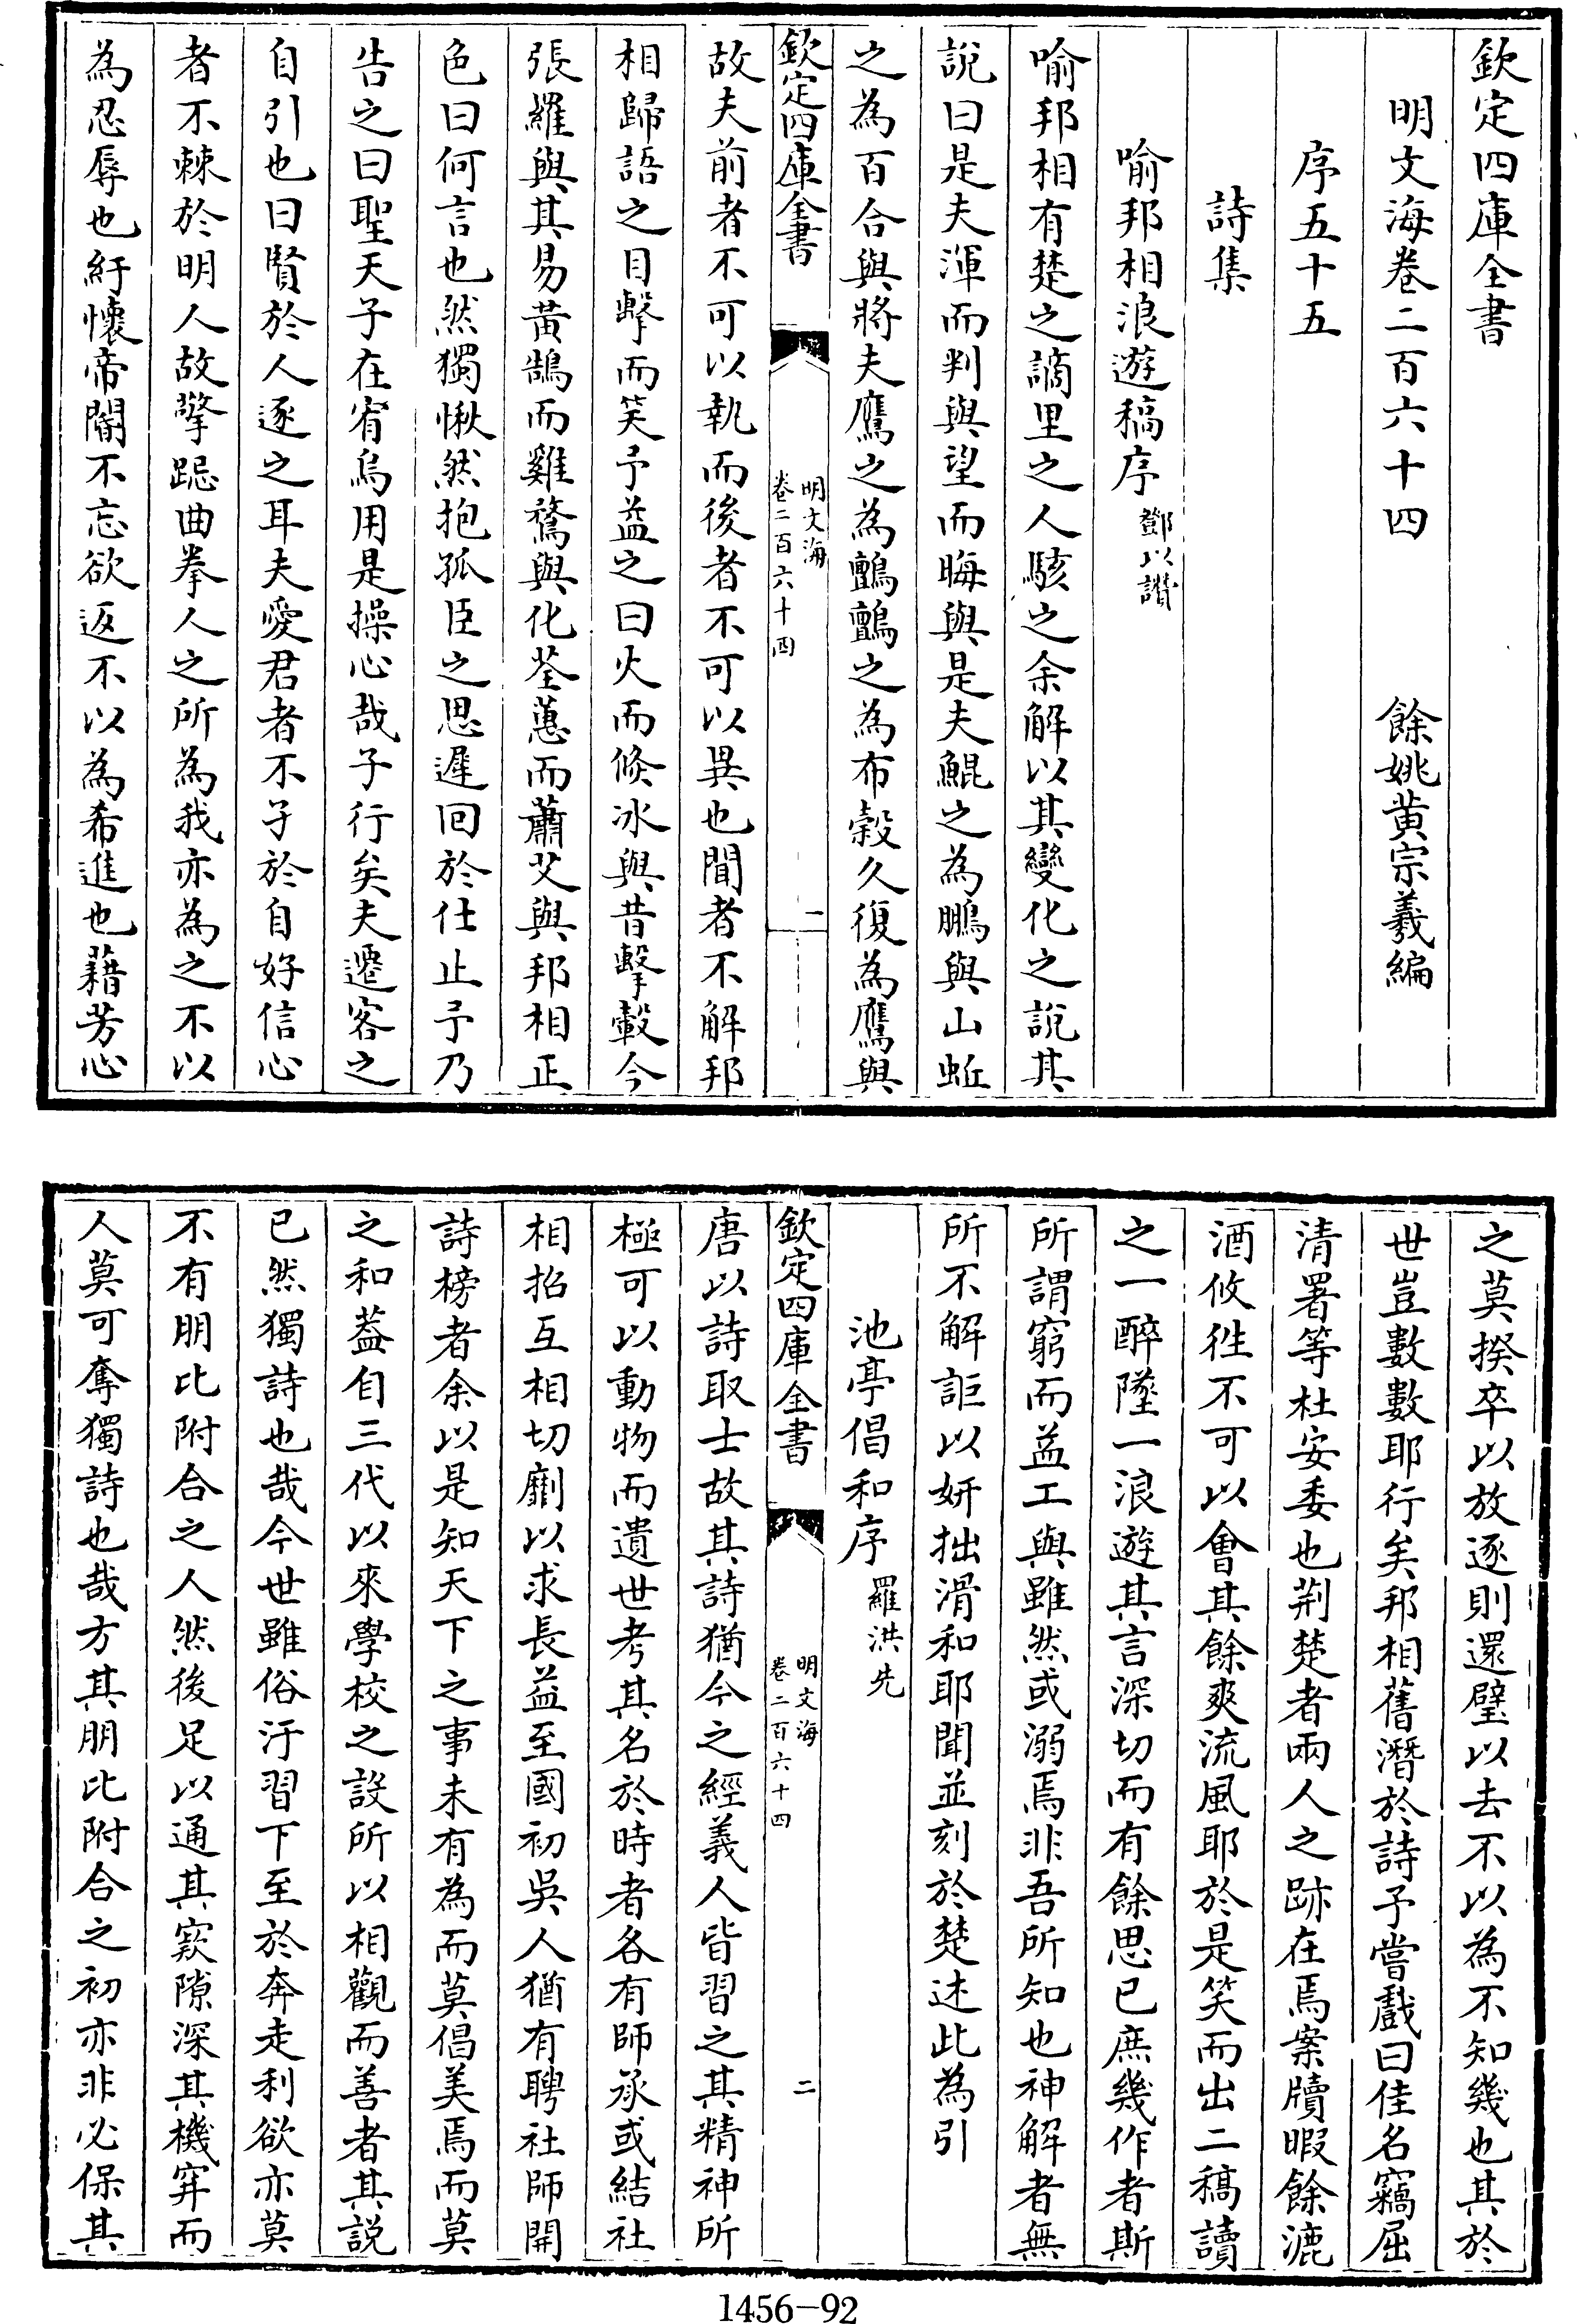 欽定四庫全書
明文海卷二百六十四　餘姚黄宗羲編
序五十五
詩集
喻邦相浪遊稿序 鄧以讚
喻邦相有楚之謫里之人駭之余解以其變化之說其
說曰是夫渾而判與望而晦與是夫鯤之為鵬與山蚯
之為百合與將夫鷹之為鸇鸇之為布穀久復為鷹與
欽定四庫全書
明文海
卷二百六十四
一
故夫前者不可以執而後者不可以異也聞者不解邦
相歸語之目擊而笑予益之曰火而倐冰與昔擊轂今
張羅與其易黄鵠而雞鶩與化荃蕙而蕭艾與邦相正
色曰何言也然獨愀然抱孤臣之思遲回於仕止予乃
告之曰聖天子在宥烏用是操心哉子行矣夫遷客之
自引也曰賢於人逐之耳夫愛君者不孑於自好信心
者不棘於明人故擎跽曲拳人之所為我亦為之不以
為忍辱也紆懷帝閽不忘欲返不以為希進也藉芳心
之莫揆卒以放逐則還璧以去不以為不知幾也其於
世豈數數耶行矣邦相舊潛於詩予嘗戲曰佳名竊屈
清署等杜安委也荆楚者兩人之跡在焉案牘暇餘漉
酒攸徃不可以㑹其餘爽流風耶於是笑而出二稿讀
之一醉墜一浪遊其言深切而有餘思已庶幾作者斯
所謂窮而益工與雖然或溺焉非吾所知也神解者無
所不解詎以妍拙滑和耶聞並刻於楚述此為引
池亭倡和序 羅洪先
欽定四庫全書
明文海
卷二百六十四
二
唐以詩取士故其詩猶今之經義人皆習之其精神所
極可以動物而遺世考其名於時者各有師承或結社
相招互相切劘以求長益至國初吳人猶有聘社師開
詩榜者余以是知天下之事未有為而莫倡美焉而莫
之和葢自三代以來學校之設所以相觀而善者其説
已然獨詩也哉今世雖俗汙習下至於奔走利欲亦莫
不有朋比附合之人然後足以通其窽隙深其機穽而
人莫可奪獨詩也哉方其朋比附合之初亦非必保其
1456—92